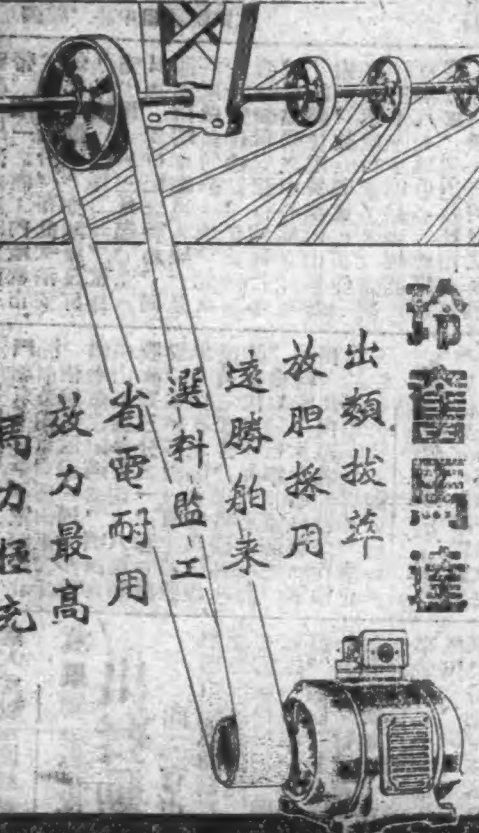 馬達
出類拔萃
放胆採用
遠勝舶来
選料監工
省電耐用
效力最高
馬力極充